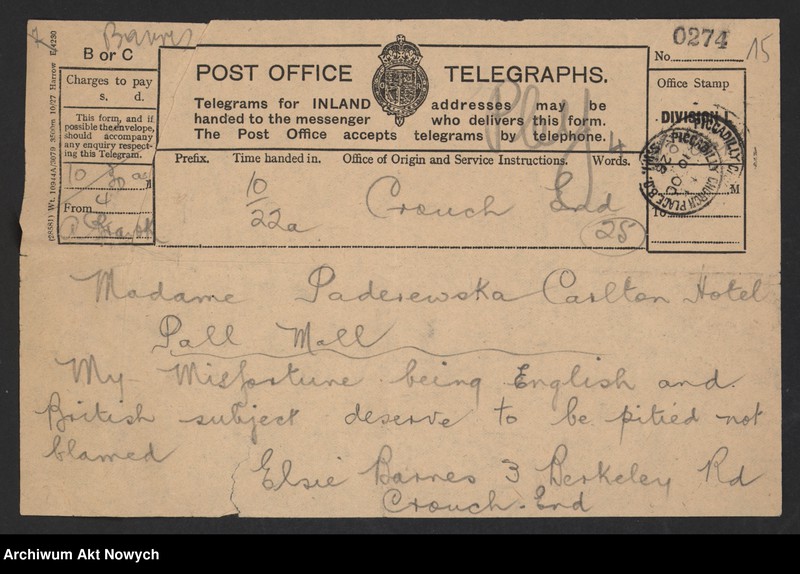 Barnes
B or C
Charges to pay
s. d.
This form, and if
possible the envelope,
should accompany
any enquiry respect-
ing this Telegram.
From
(28581) Wt. 10944A/3070 10/27 Harrow E/4230
POST OFFICE TELEGRAPHS.
Telegrams for INLAND addresses may be
handed to the messenger who delivers this form.
The Post Office accepts telegrams by telephone.
Prefix. Time handed in. Office of Origin and Service Instructions. Words.
10/22a Crouch End 25
0274
No. 15
Office Stamp
DIVISION
PICCADILLY
M
Madame Paderewska Carlton Hotel
Pall Mall
My Misfortune being English and
British subject deserve to be pitied not
blamed
Elsie Barnes 3 Berkeley Rd
Crouch-End
Archiwum Akt Nowych